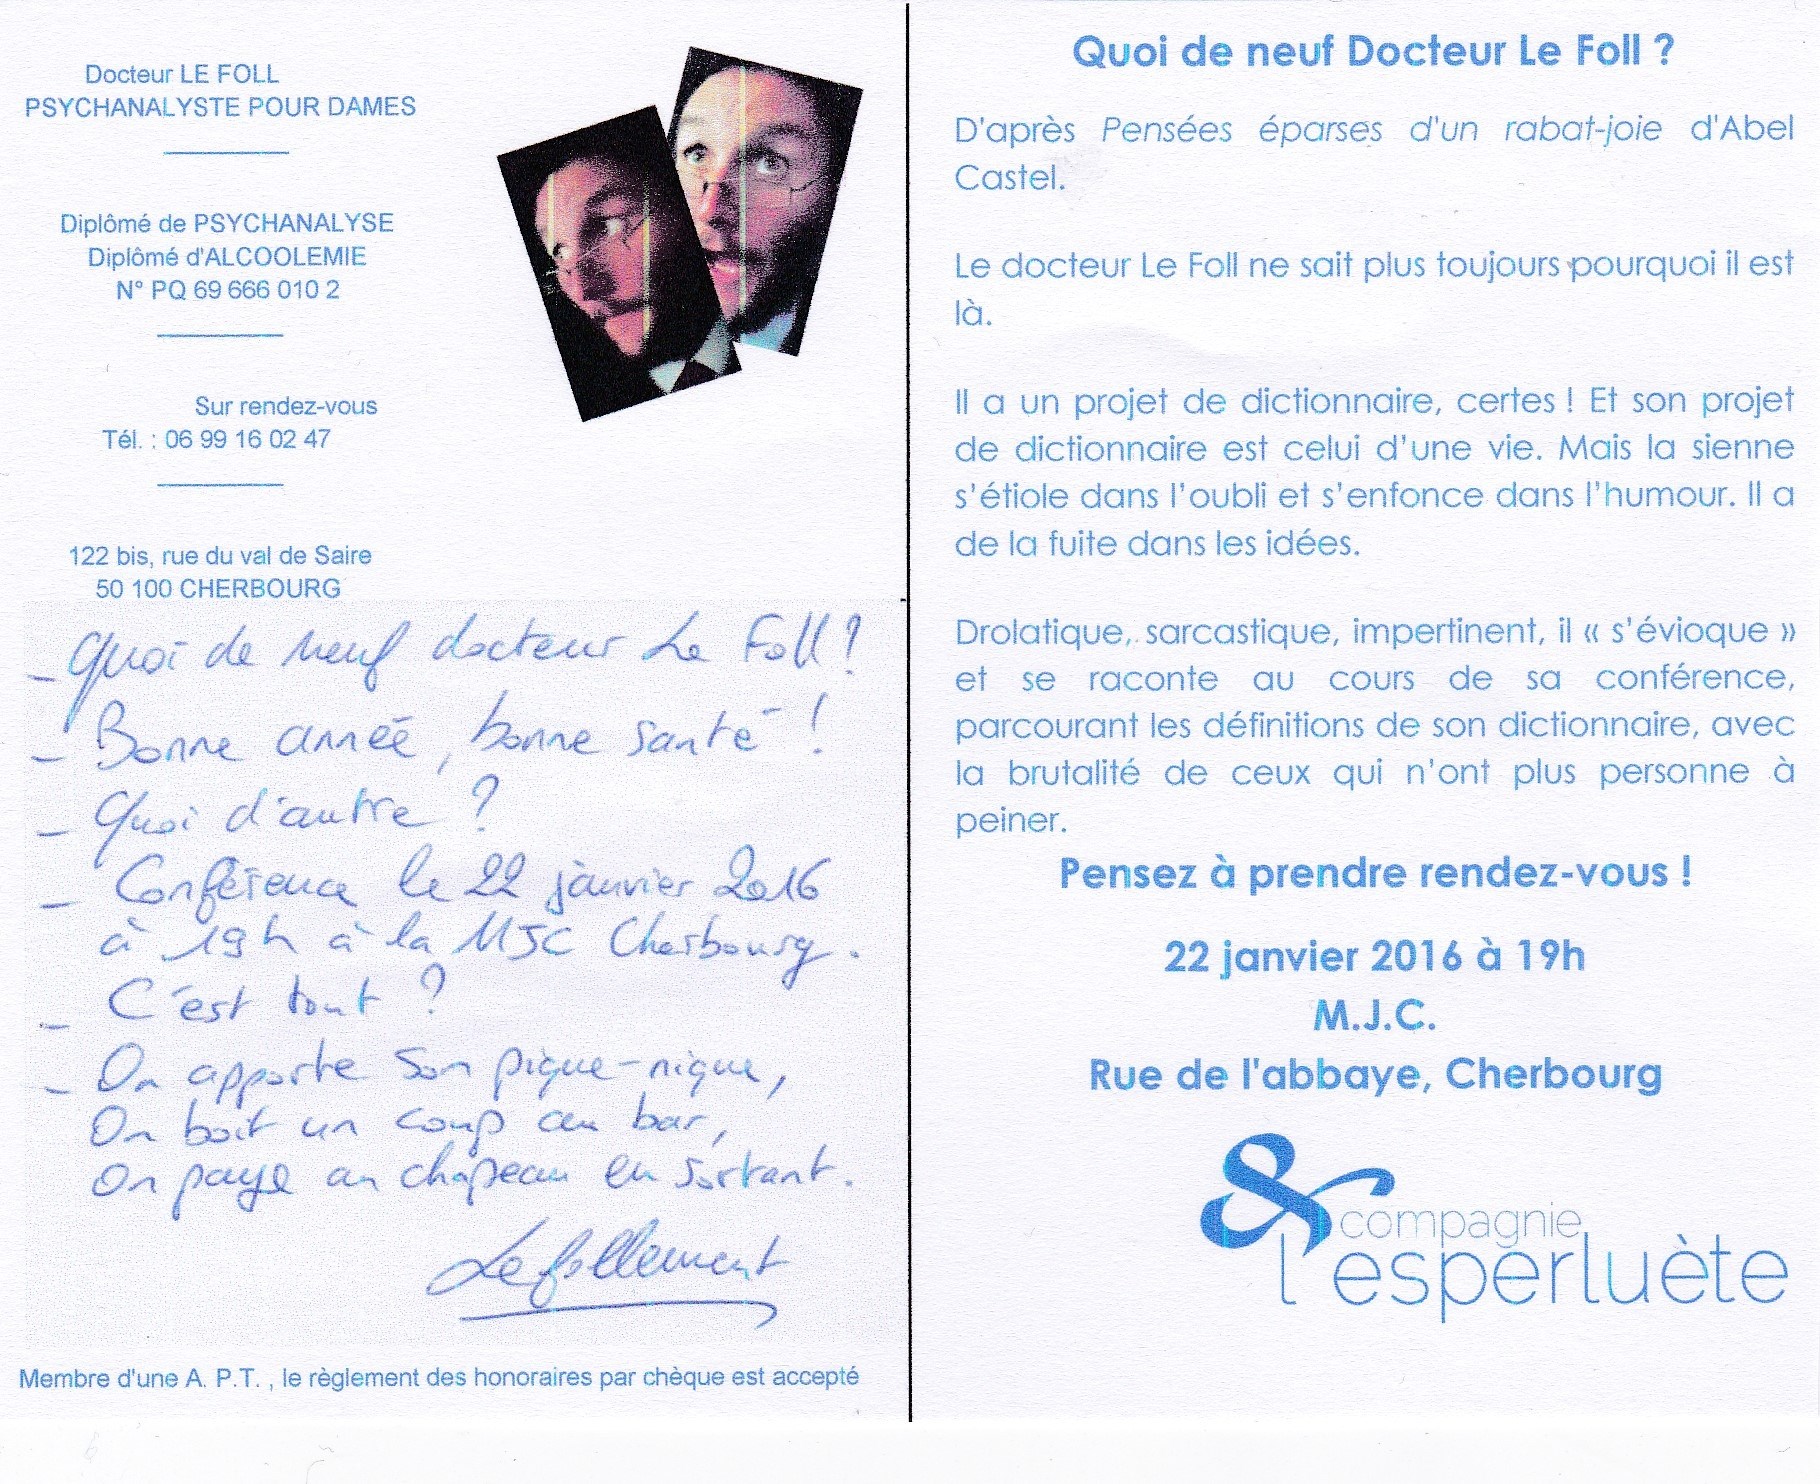 Docteur LE FOLL
PSYCHANALYSTE POUR DAMES
Diplômé de PSYCHANALYSE
Diplômé d'ALCOOLEMIE
N° PQ 69 666 010 2
Sur rendez-vous
Tél. : 06 99 16 02 47
122 bis, rue du val de Saire
50 100 CHERBOURG
- Quoi de neuf docteur Le Foll ?
- Bonne année, bonne santé !
- Quoi d'autre ?
- Conférence le 22 janvier 2016
à 19h à la MJC Cherbourg.
- C'est tout ?
- On apporte son pique-nique,
On boit un coup au bar,
On paye au chapeau en sortant.
Lefollement
Membre d'une A. P.T. , le règlement des honoraires par chèque est accepté
Quoi de neuf Docteur Le Foll ?
D'après Pensées éparses d'un rabat-joie d'Abel
Castel.
Le docteur Le Foll ne sait plus toujours pourquoi il est
là.
Il a un projet de dictionnaire, certes ! Et son projet
de dictionnaire est celui d'une vie. Mais la sienne
s'étiole dans l'oubli et s'enfonce dans l'humour. Il a
de la fuite dans les idées.
Drolatique, sarcastique, impertinent, il « s'évioque »
et se raconte au cours de sa conférence,
parcourant les définitions de son dictionnaire, avec
la brutalité de ceux qui n'ont plus personne à
peiner.
Pensez à prendre rendez-vous !
22 janvier 2016 à 19h
M.J.C.
Rue de l'abbaye, Cherbourg
& compagnie
l'esperluète